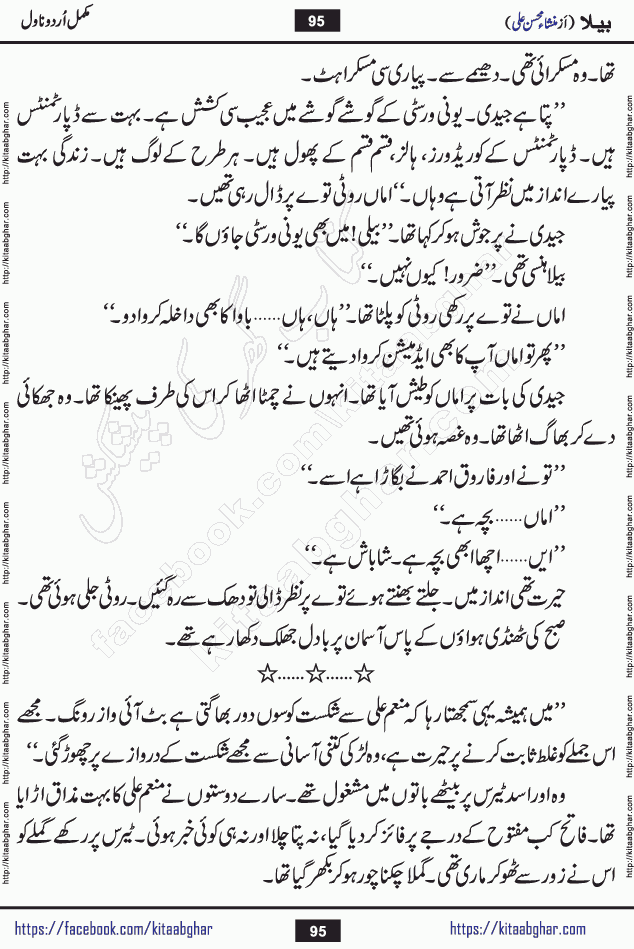 بیلا (از منشاء محسن علی) 95 مکمل اُردو ناول
تھا۔ وہ مسکرائی تھی۔ دھیمے سے۔ پیاری سی مسکراہٹ۔
”پتا ہے جیدی۔ یونی ورسٹی کے گوشے گوشے میں عجیب سی کشش ہے۔ بہت سے ڈپارٹمنٹس
ہیں۔ ڈپارٹمنٹس کے کوریڈورز، ہالز، قسم قسم کے پھول ہیں۔ ہر طرح کے لوگ ہیں۔ زندگی بہت
پیارے انداز میں نظر آتی ہے وہاں۔“ اماں روٹی توے پر ڈال رہی تھیں۔
جیدی نے پرجوش ہو کر کہا تھا۔ ”بیلی! میں بھی یونی ورسٹی جاؤں گا۔“
بیلا ہنسی تھی۔ ”ضرور! کیوں نہیں۔“
اماں نے توے پر رکھی روٹی کو پلٹا تھا۔ ”ہاں، ہاں...... باوا کا بھی داخلہ کروا دو۔“
”پھر تو اماں آپ کا بھی ایڈمیشن کروا دیتے ہیں۔“
جیدی کی بات پر اماں کو طیش آیا تھا۔ انہوں نے چمٹا اٹھا کر اس کی طرف پھینکا تھا۔ وہ جھکائی
دے کر بھاگ اٹھا تھا۔ وہ غصہ ہوئی تھیں۔
”تو نے اور فاروق احمد نے بگاڑا ہے اسے۔“
”اماں...... بچہ ہے۔“
”ایں...... اچھا ابھی بچہ ہے۔ شاباش ہے۔“
حیرت تھی انداز میں۔ جلتے بھنتے ہوئے توے پر نظر ڈالی تو دھک سے رہ گئیں۔ روٹی جلی ہوئی تھی۔
صبح کی ٹھنڈی ہواؤں کے پاس آسمان پر بادل جھلک دکھا رہے تھے۔
☆......☆......☆
”میں ہمیشہ یہی سمجھتا رہا کہ منعم علی سے شکست کوسوں دور بھاگتی ہے بٹ آئی واز رونگ۔ مجھے
اس جملے کو غلط ثابت کرنے پر حیرت ہے، وہ لڑکی کتنی آسانی سے مجھے شکست کے دروازے پر چھوڑ گئی۔“
وہ اور اسد ٹیرس پر بیٹھے باتوں میں مشغول تھے۔ سارے دوستوں نے منعم علی کا بہت مذاق اڑایا
تھا۔ فاتح کب مفتوح کے درجے پر فائز کر دیا گیا، نہ پتا چلا اور نہ ہی کوئی خبر ہوئی۔ ٹیرس پر رکھے گملے کو
اس نے زور سے ٹھوکر ماری تھی۔ گملا چکنا چور ہو کر بکھر گیا تھا۔
https://facebook.com/kitaabghar 95 https://kitaabghar.com
http://kitaabghar.com http://kitaabghar.com http://kitaabghar.com http://kitaabghar.com http://kitaabghar.com http://kitaabghar.com http://kitaabghar.com http://kitaabghar.com
http://kitaabghar.com http://kitaabghar.com http://kitaabghar.com http://kitaabghar.com http://kitaabghar.com http://kitaabghar.com http://kitaabghar.com http://kitaabghar.com
کتاب گھر کی پیشکش
kitaabghar.com
facebook.com/kitaabghar